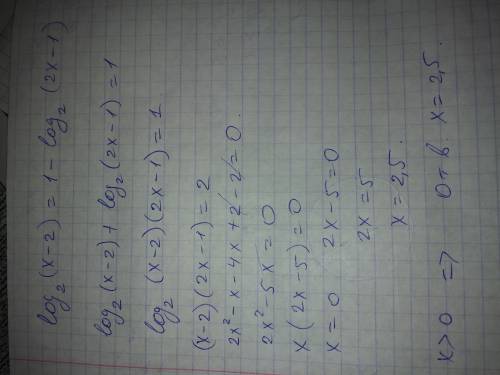 log₂(x-2) = 1 - log₂(2x-1)
log₂(x-2) + log₂(2x-1) = 1
log₂ (x-2)(2x-1) = 1
(x-2)(2x-1) = 2
2x² - x - 4x + 2 - 2 = 0.
2x² - 5x = 0
x(2x-5) = 0
x = 0 2x-5=0
2x = 5
x = 2,5.
x>0 => Отв x = 2,5.